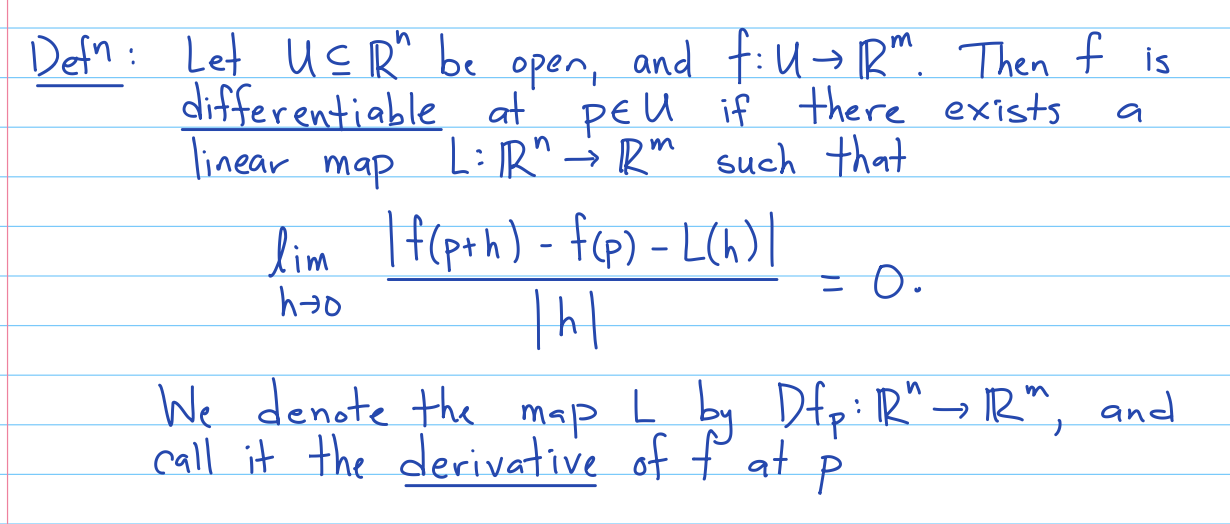 Defⁿ: Let U ⊆ ℝⁿ be open, and f: U → ℝᵐ. Then f is
differentiable at p∈U if there exists a
linear map L: ℝⁿ → ℝᵐ such that
lim h→0 |f(p+h) - f(p) - L(h)| / |h| = 0.
We denote the map L by Dfₚ: ℝⁿ → ℝᵐ, and
call it the derivative of f at p